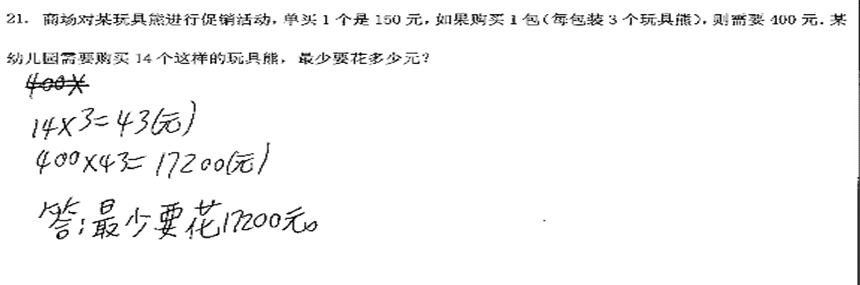 21. 商场对某玩具熊进行促销活动,单买1个是150元,如果购买1包(每包装3个玩具熊),则需要400元.某
幼儿园需要购买14个这样的玩具熊,最少要花多少元?
400×
14×3=43(元)
400×43=17200(元)
答:最少要花17200元。